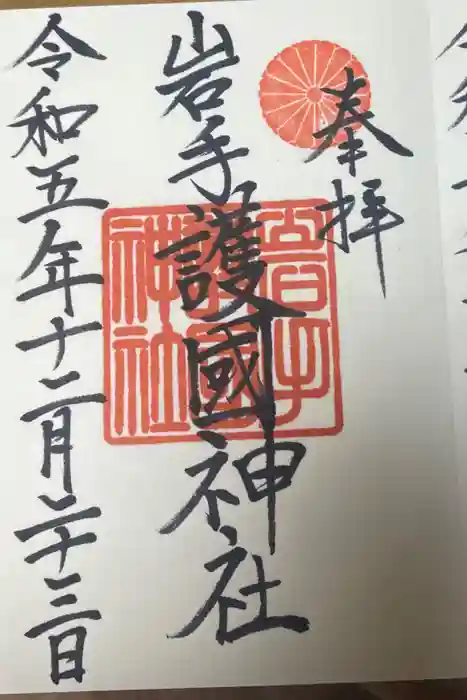 奉拝
岩手護國神社
岩手護國神社
令和五年十二月二十三日